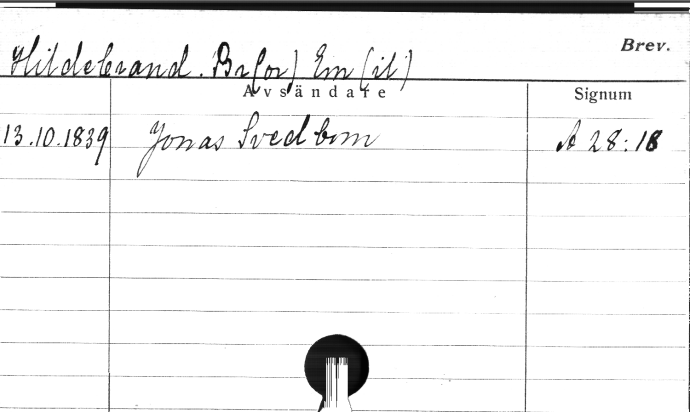 Brev.
Hildebrand. Br(or) Em(il)
Avsändare Signum
13.10.1839 Jonas Svedbom A 28:18